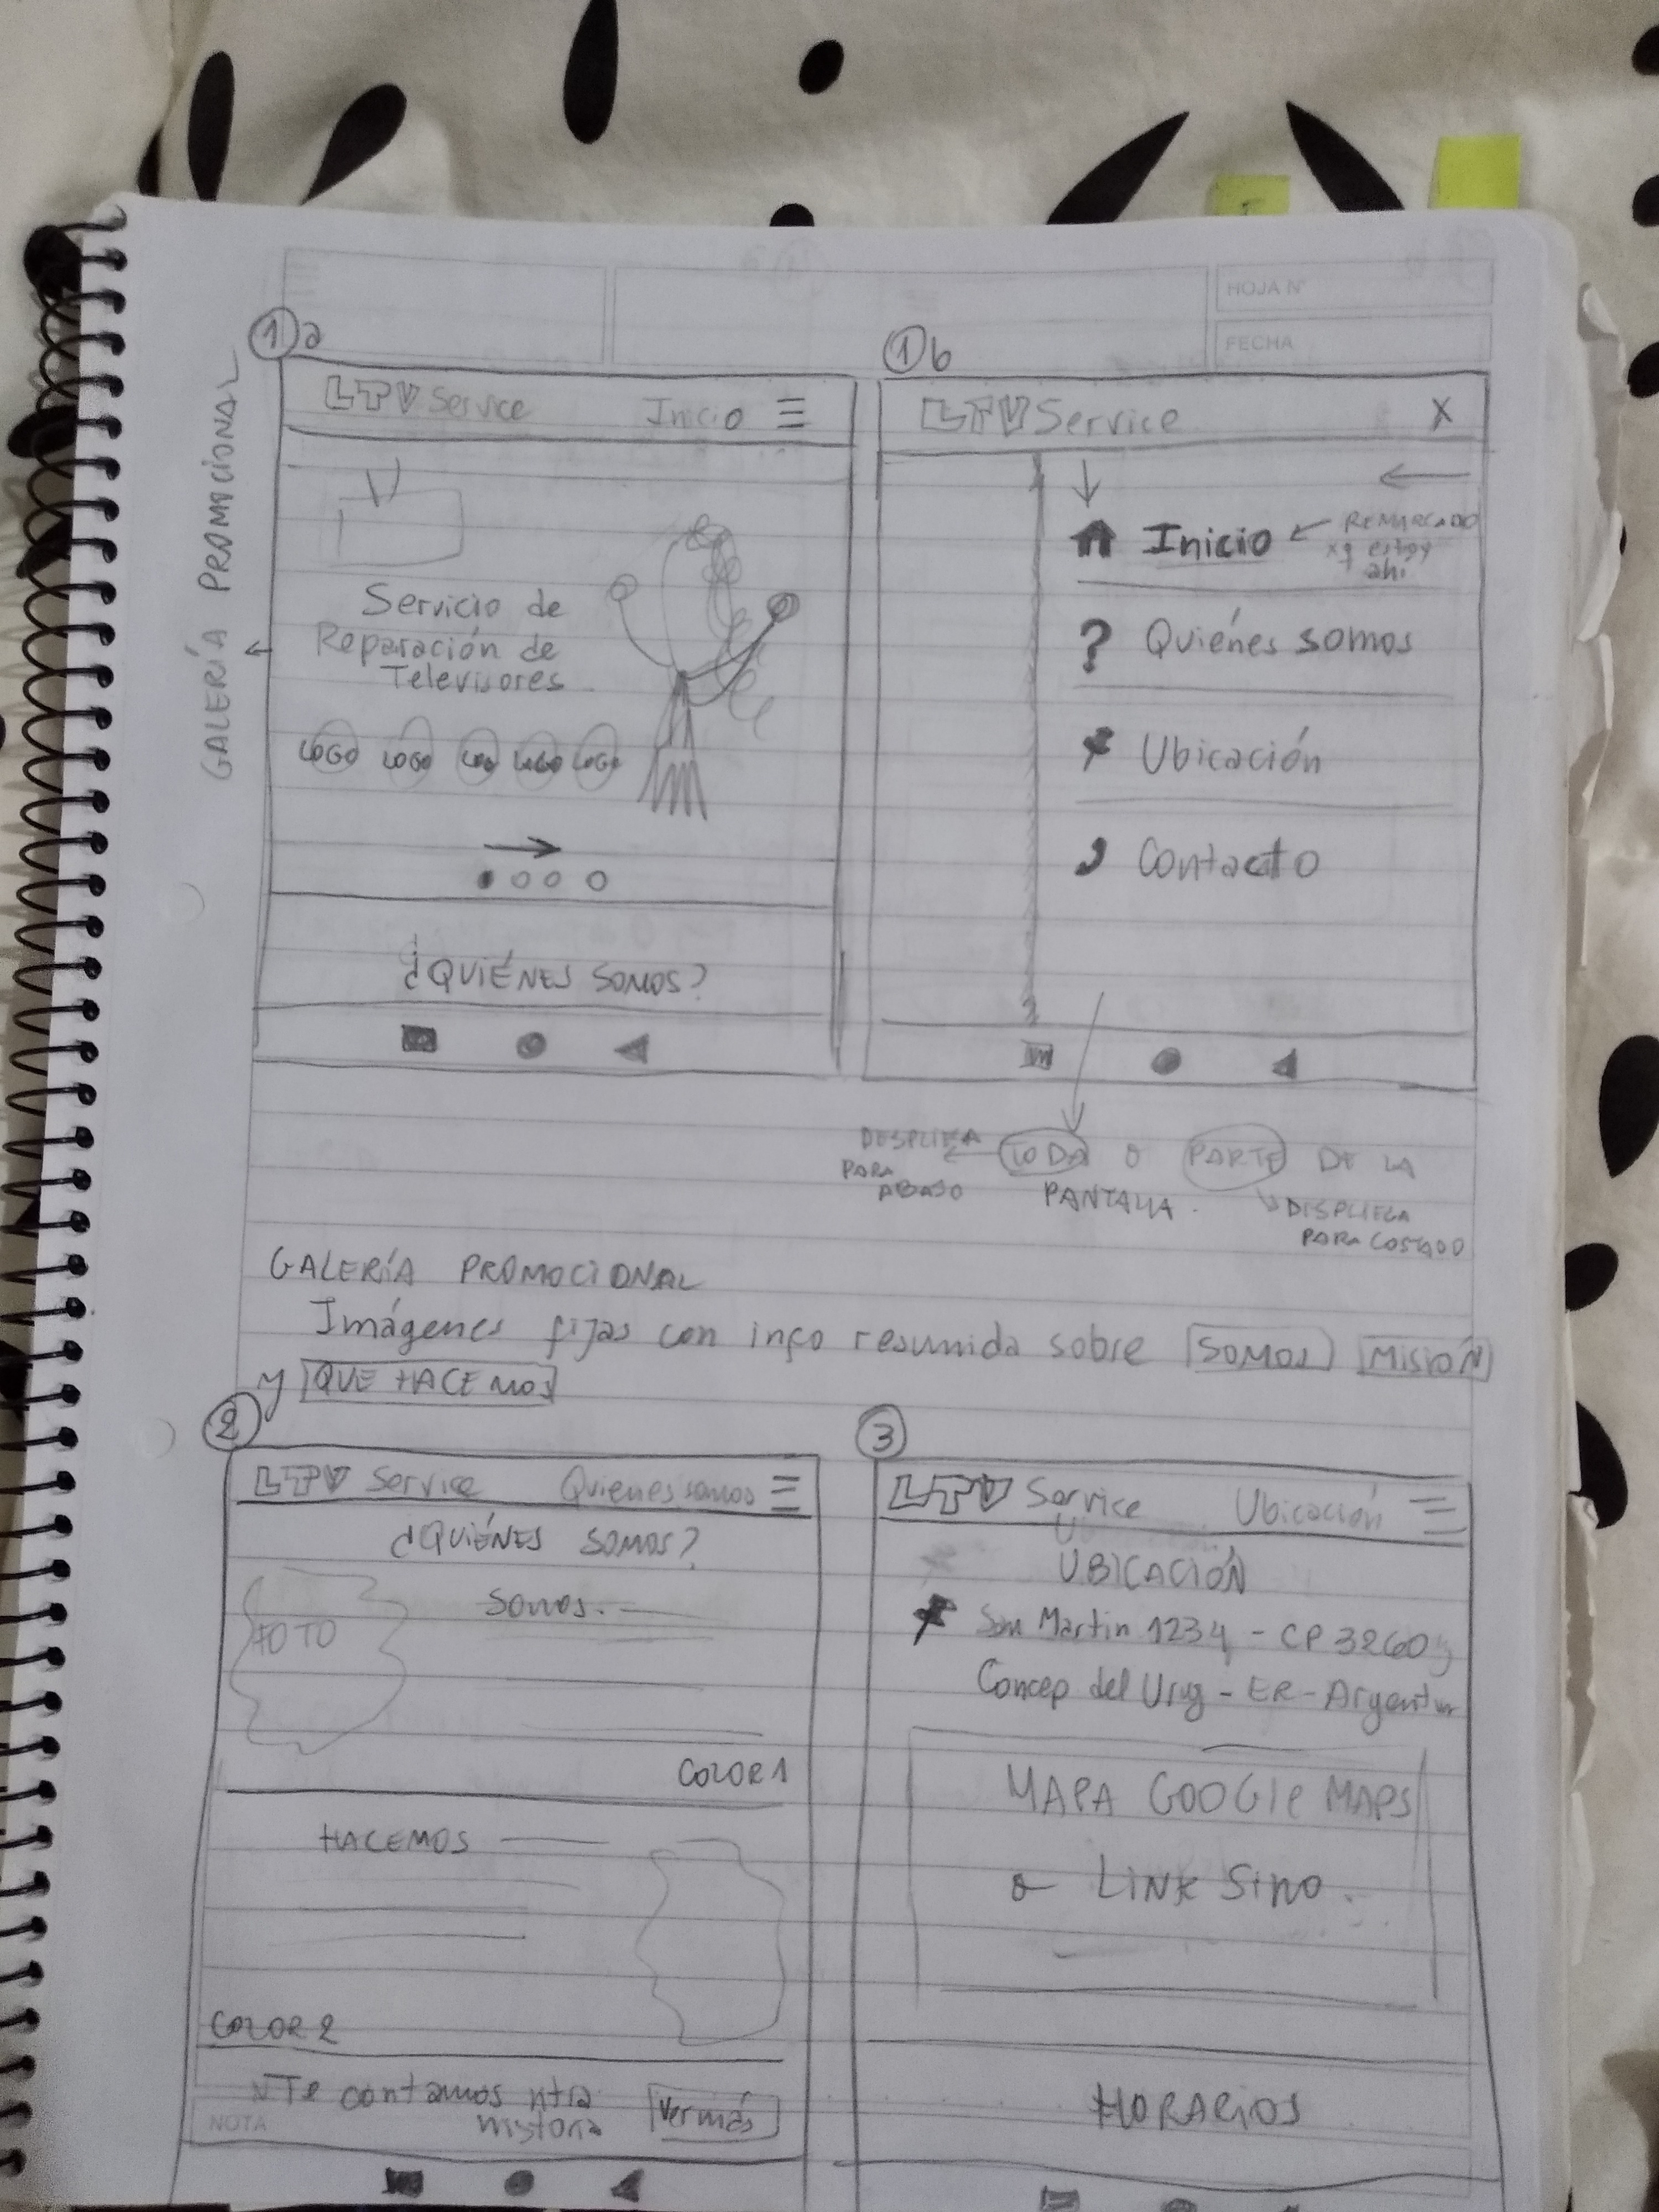 HOJA Nº
FECHA
1 a
GALERÍA PROMOCIONAL
LTV Service Inicio
Servicio de
Reparación de
Televisores
LOGO LOGO LOGO LOGO LOGO
¿QUIÉNES SOMOS?
1 b
LTV Service X
Inicio
REMARCADO
xq estoy
ahi
? Quiénes somos
Ubicación
Contacto
DESPLIEGA
PARA
ABAJO
TODA o PARTE DE LA
PANTALLA.
DESPLIEGA
PARA COSTADO
GALERÍA PROMOCIONAL
Imágenes fijas con info resumida sobre SOMOS MISIÓN
y QUE HACEMOS
2
LTV Service Quienes somos
¿QUIÉNES SOMOS?
FOTO
SOMOS.
COLOR 1
HACEMOS
COLOR 2
Te contamos ntra
historia
Ver más
NOTA
3
LTV Service Ubicación
UBICACIÓN
San Martin 1234 - CP 3260
Concep del Urug - ER - Argentina
MAPA GOOGLE MAPS
o LINK SINO.
HORARIOS